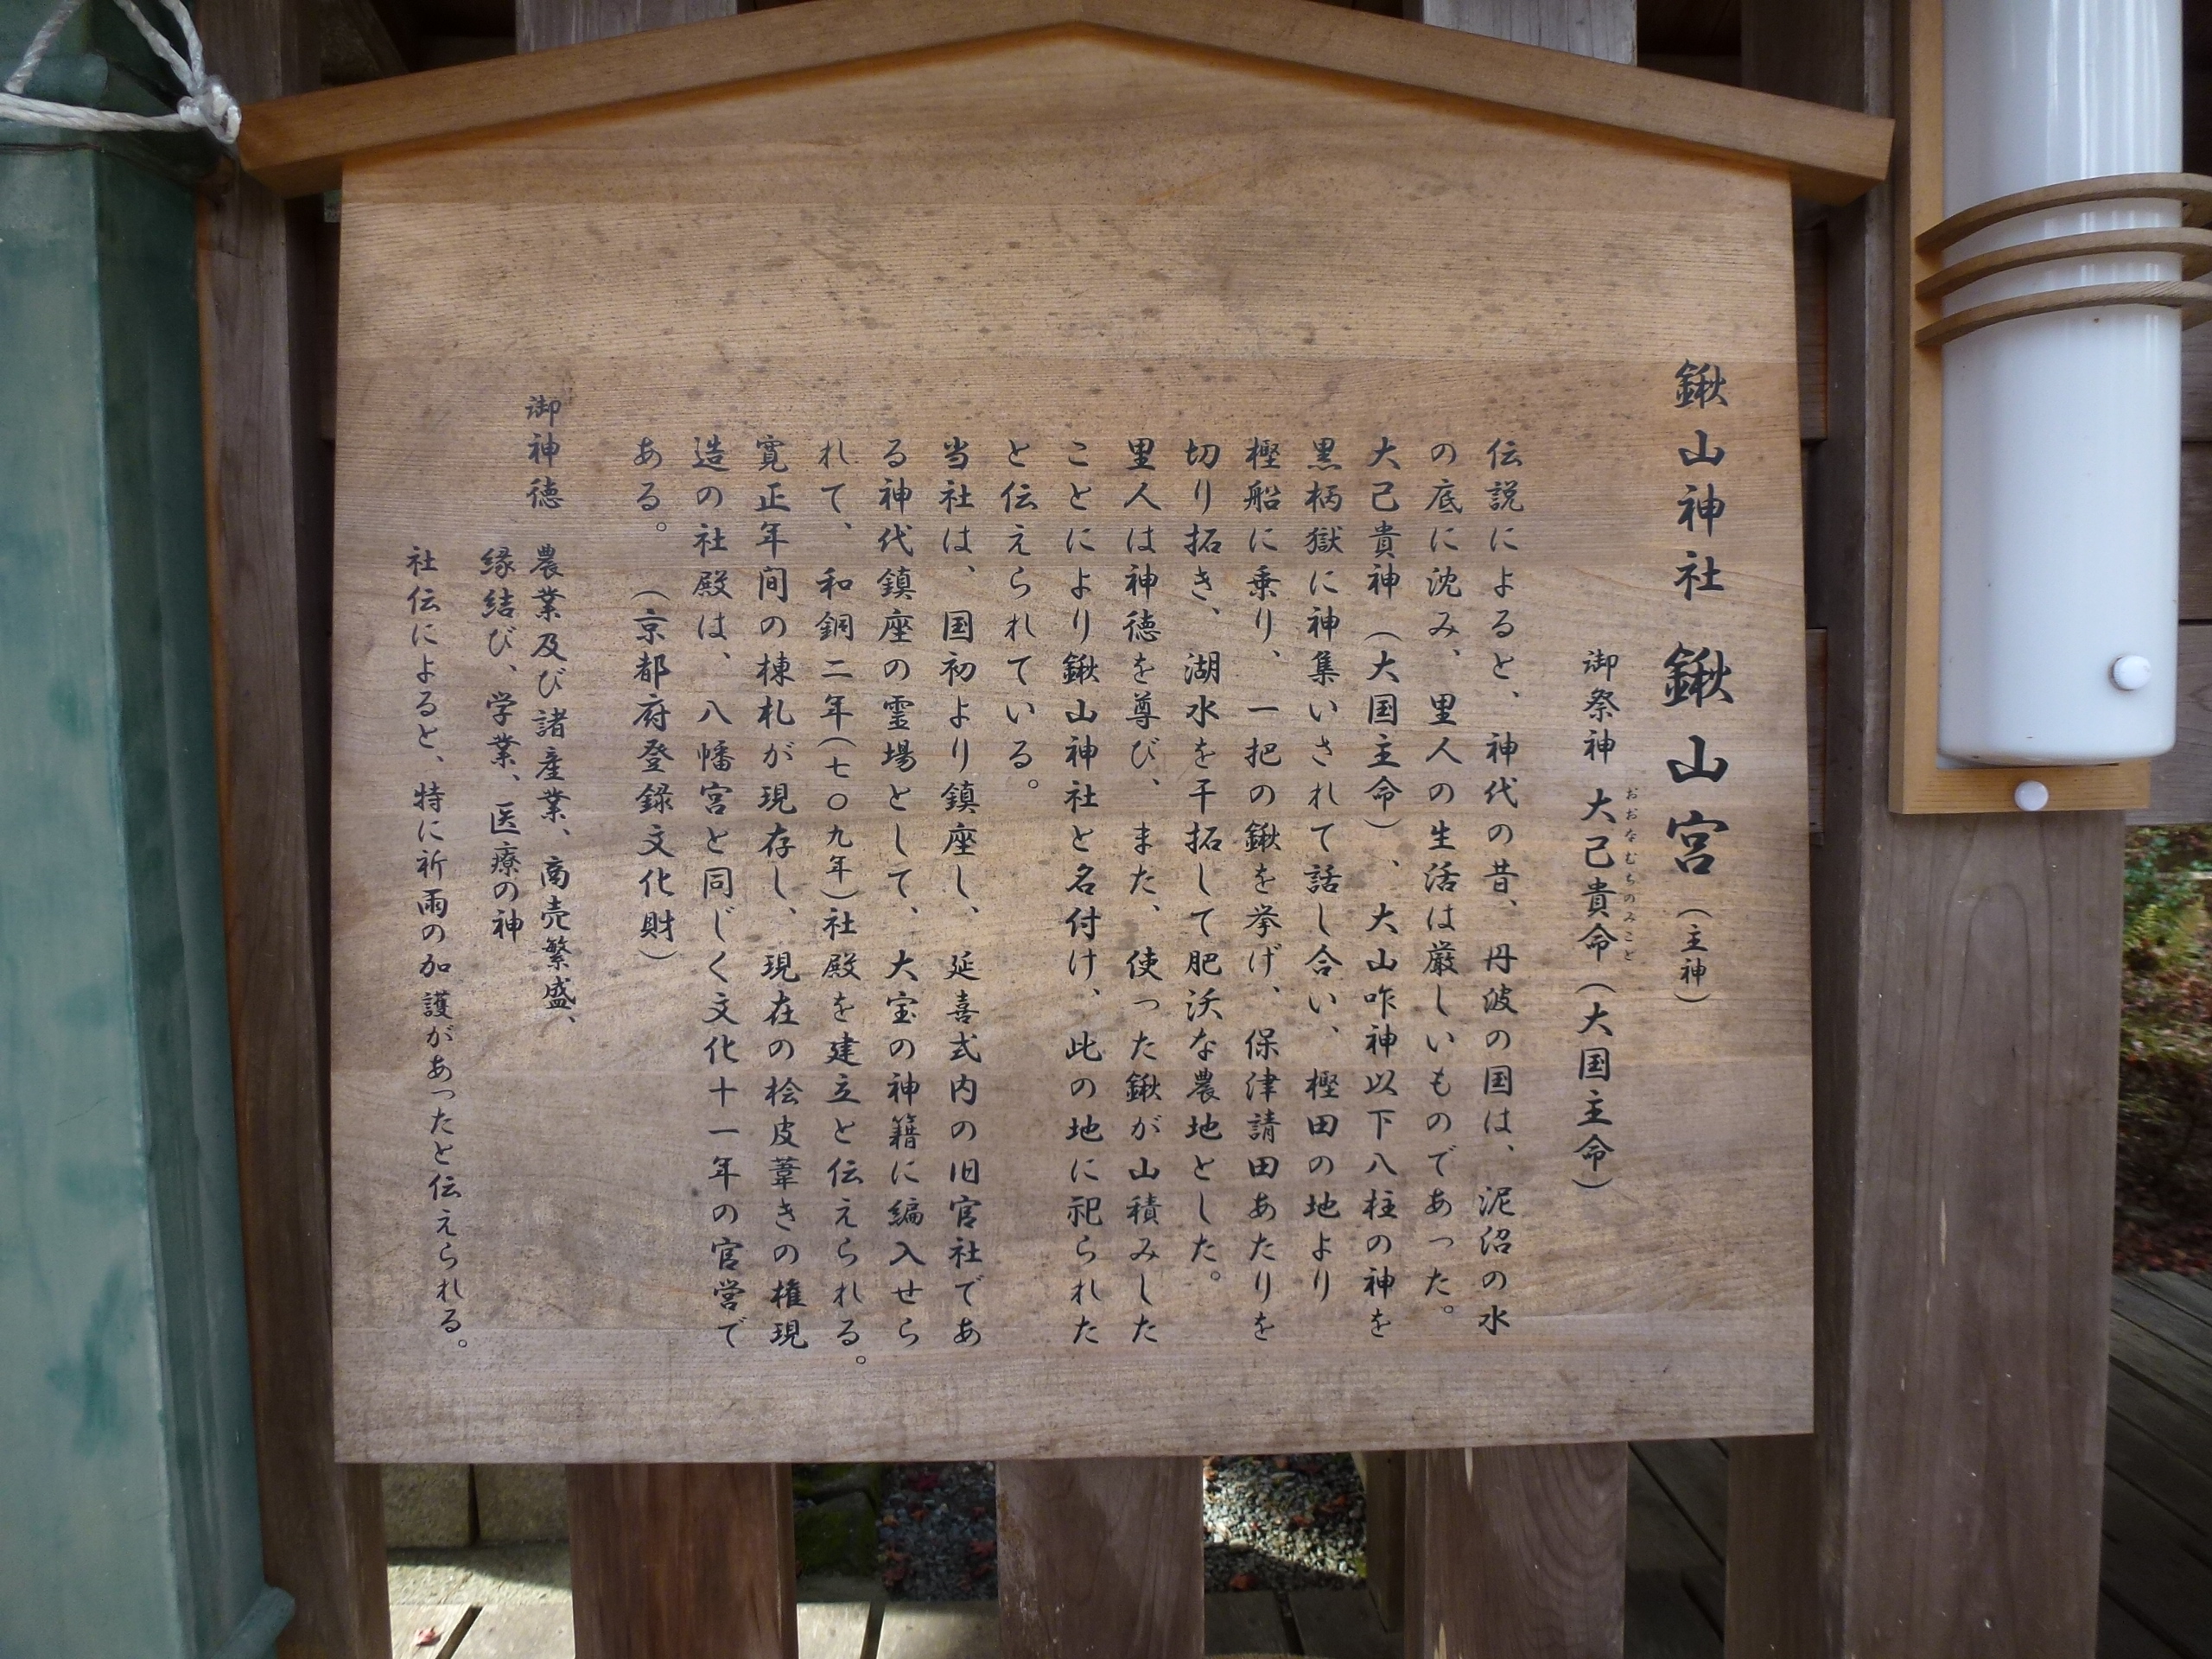 鍬山神社　鍬山宮（主神）
御祭神　大己貴命（大国主命）
おおなむちのみこと
伝説によると、神代の昔、丹波の国は、泥沼の水
の底に沈み、里人の生活は厳しいものであった。
大己貴神（大国主命）、大山咋神以下八柱の神を
黒柄獄に神集いされて話し合い、樫田の地より
樫船に乗り、一把の鍬を挙げ、保津請田あたりを
切り拓き、湖水を干拓して肥沃な農地とした。
里人は神徳を尊び、また、使った鍬が山積みした
ことにより鍬山神社と名付け、此の地に祀られた
と伝えられている。
当社は、国初より鎮座し、延喜式内の旧官社であ
る神代鎮座の霊場として、大宝の神籍に編入せら
れて、和銅二年（七〇九年）社殿を建立と伝えられる。
寛正年间の棟札が現存し、現在の桧皮葺きの権現
造の社殿は、八幡宮と同じく文化十一年の官営で
ある。（京都府登録文化財）
御神徳　農業及び諸産業、商売繁盛、
縁結び、学業、医療の神
社伝によると、特に祈雨の加護があったと伝えられる。